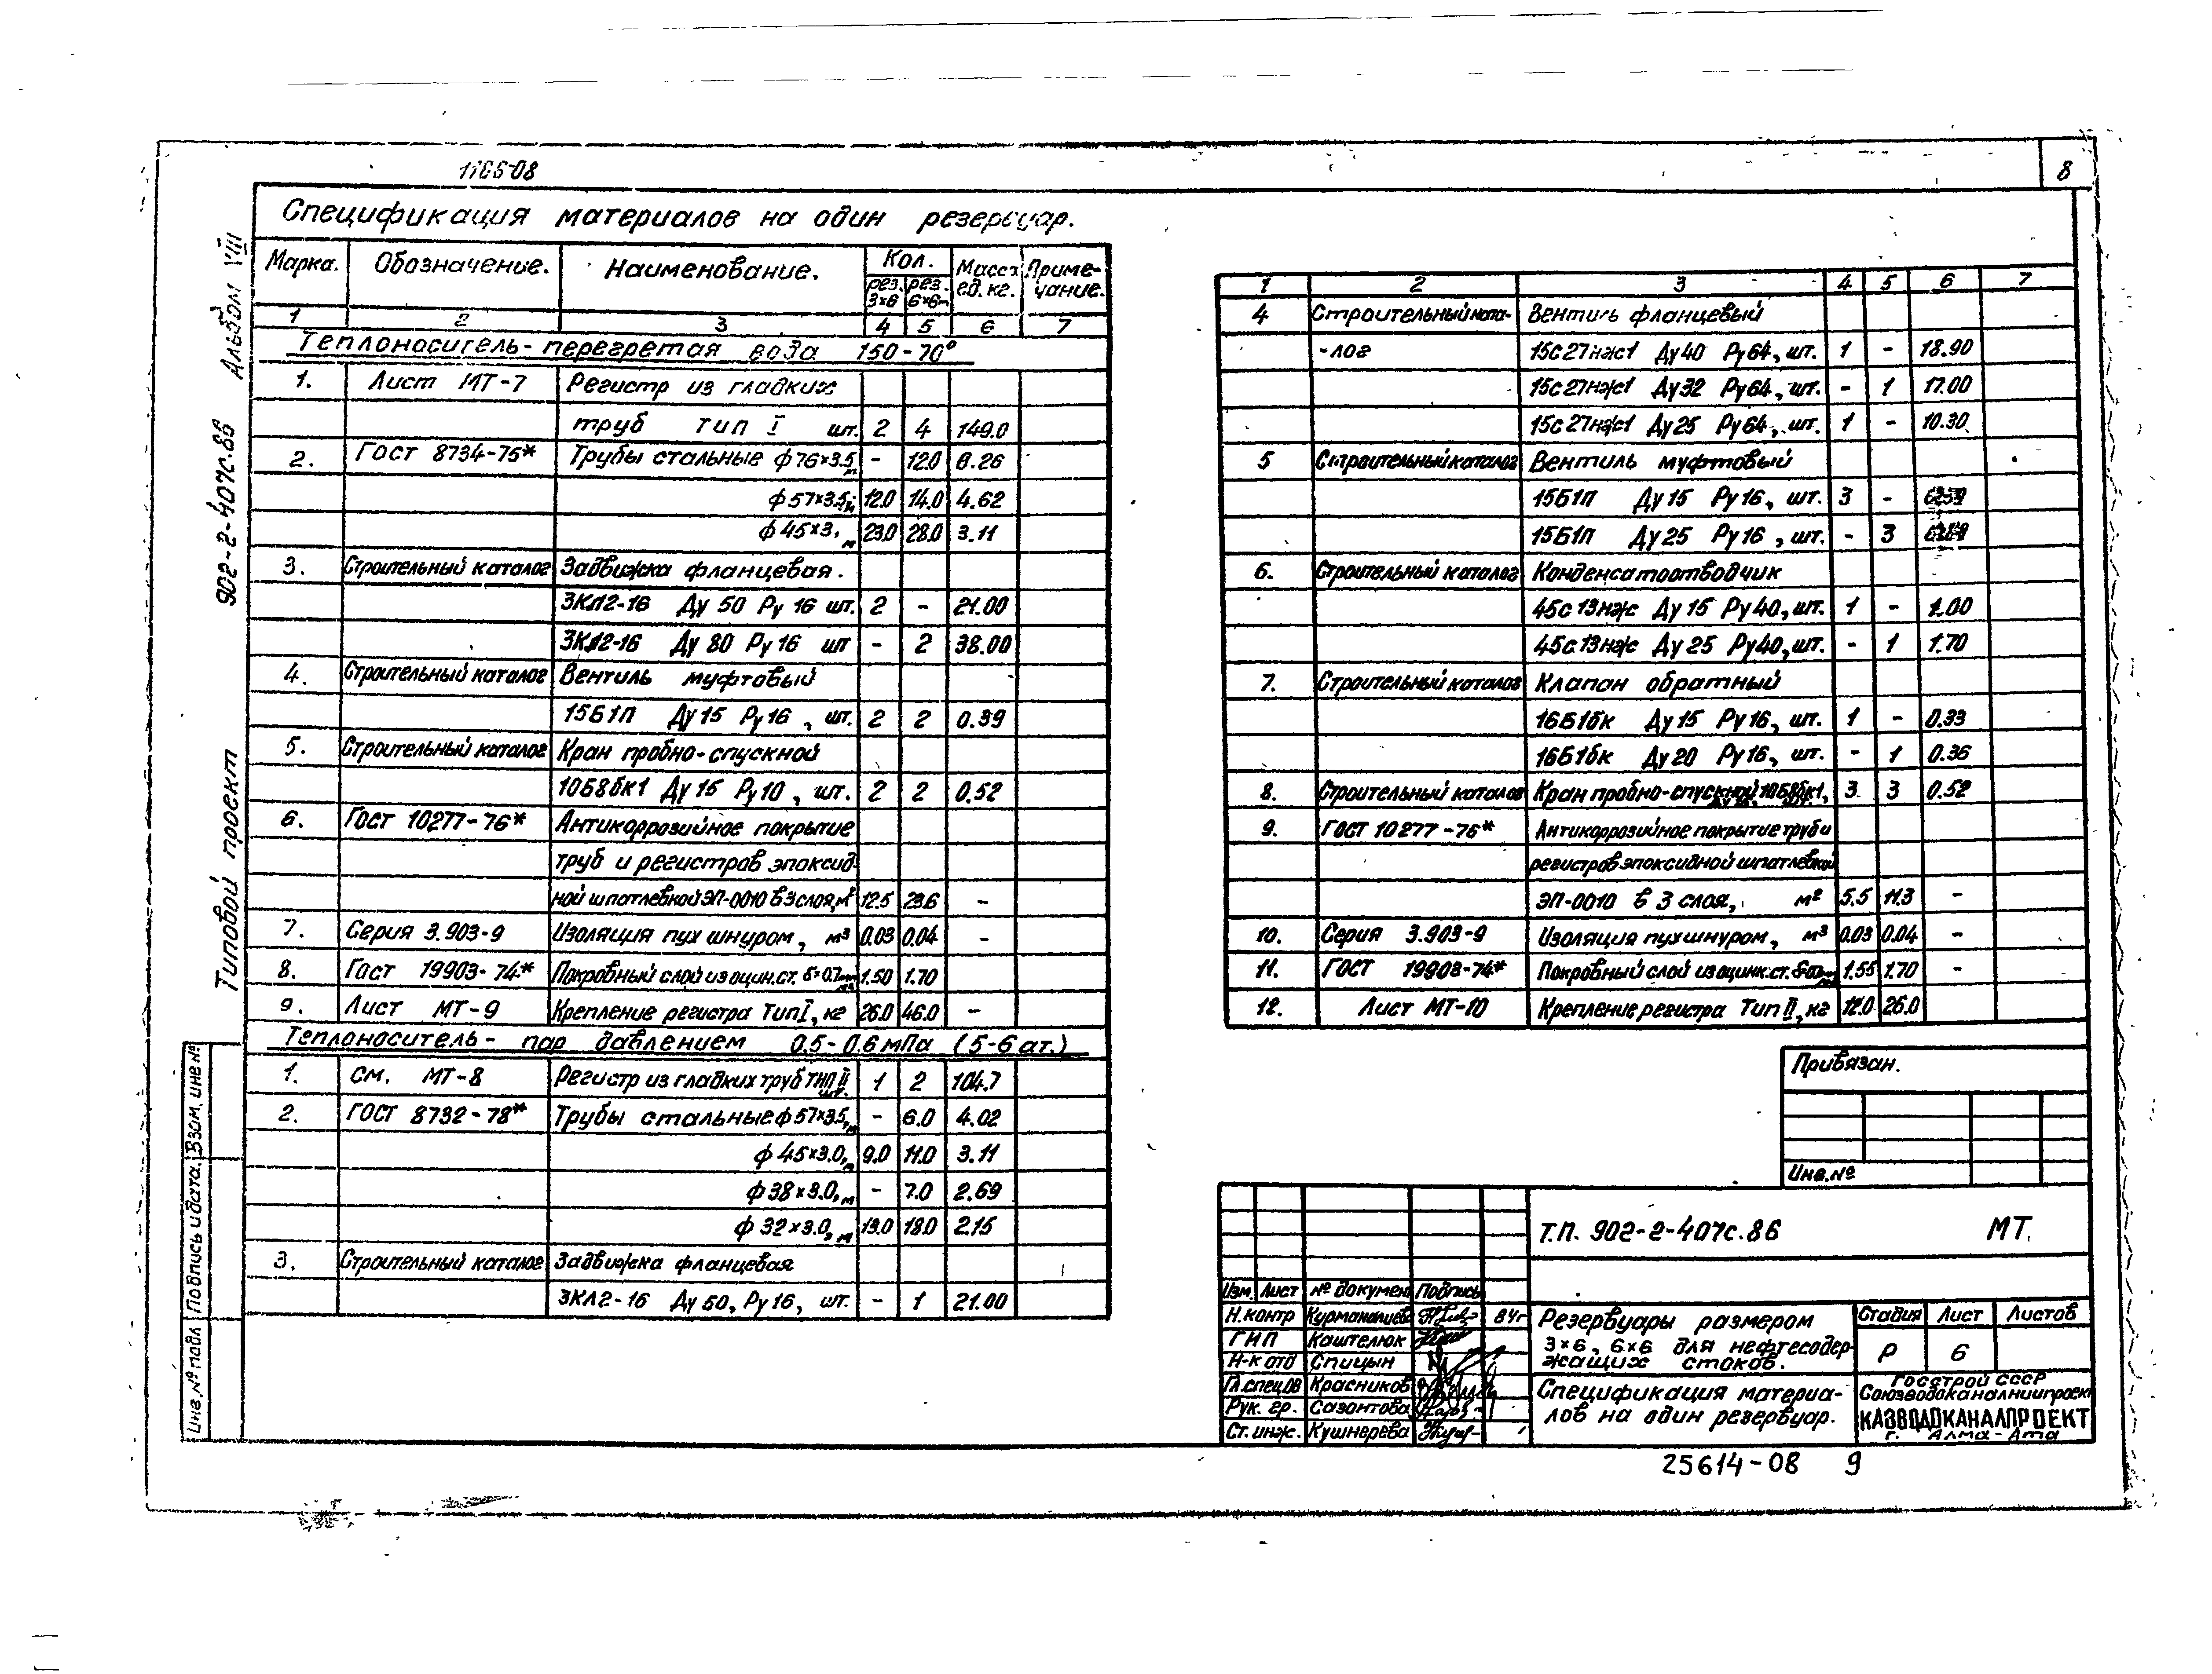 8
Альбом VIII
902-2-407с.86
Типовой проект
Спецификация материалов на один резервуар.
Марка. Обозначение. Наименование. Кол. Масса ед. кг. Приме-чание.
рез. 3×6 рез. 6×6м
1 2 3 4 5 6 7
Теплоноситель-перегретая вода 150-70°
1. Лист МТ-7 Регистр из гладких
труб тип I шт. 2 4 149.0
2. Гост 8734-75* Трубы стальные ф76×3.5 м - 12.0 6.26
ф57×3.5, м 12.0 14.0 4.62
ф45×3, м 23.0 28.0 3.11
3. Строительный каталог Задвижка фланцевая.
ЗКЛ2-16 Ду 50 Ру 16 шт. 2 - 21.00
ЗКЛ2-16 Ду 80 Ру 16 шт - 2 38.00
4. Строительный каталог Вентиль муфтовый
15Б1П Ду 15 Ру 16, шт. 2 2 0.39
5. Строительный каталог Кран пробно-спускной
10Б8бк1 Ду 15 Ру 10, шт. 2 2 0.52
6. Гост 10277-76* Антикоррозийное покрытие
труб и регистров эпоксид-
ной шпатлевкой ЭП-0010 в 3 слоя, м² 12.5 23.6 -
7. Серия 3.903-9 Изоляция пух шнуром, м³ 0.03 0.04 -
8. Гост 19903-74* Покровный слой из оцин.ст. δ=0.7мм м² 1.50 1.70
9. Лист МТ-9 Крепление регистра Тип I, кг 26.0 46.0 -
Теплоноситель - пар давлением 0.5-0.6 мПа (5-6 ат.)
1. см. МТ-8 Регистр из гладких труб тип II шт. 1 2 104.7
2. ГОСТ 8732-78* Трубы стальные ф57×3.5, м - 6.0 4.02
ф45×3.0, м 9.0 11.0 3.11
ф38×3.0, м - 7.0 2.69
ф32×3.0, м 19.0 18.0 2.15
3. Строительный каталог Задвижка фланцевая
ЗКЛ2-16 Ду 50, Ру 16, шт. - 1 21.00
1 2 3 4 5 6 7
4 Строительный ката- Вентиль фланцевый
-лог 15с27нж1 Ду 40 Ру 64, шт. 1 - 18.90
15с27нж1 Ду 32 Ру 64, шт. - 1 17.00
15с27нж1 Ду 25 Ру 64, шт. 1 - 10.30
5 Строительный каталог Вентиль муфтовый
15Б1П Ду 15 Ру 16, шт. 3 -
15Б1П Ду 25 Ру 16, шт. - 3
6. Строительный каталог Конденсатоотводчик
45с13нж Ду 15 Ру 40, шт. 1 - 1.00
45с13нж Ду 25 Ру 40, шт. - 1 1.70
7. Строительный каталог Клапан обратный
16Б1бк Ду 15 Ру 16, шт. 1 - 0.33
16Б1бк Ду 20 Ру 16, шт. - 1 0.36
8. Строительный каталог Кран пробно-спускной 10Б8бк1, 3 3 0.52
9. ГОСТ 10277-76* Антикоррозийное покрытие труб и
регистров эпоксидной шпатлевкой
ЭП-0010 в 3 слоя, м² 5.5 11.3 -
10. Серия 3.903-9 Изоляция пух шнуром, м³ 0.03 0.04 -
11. ГОСТ 19903-74* Покровный слой из оцинк.ст. 1.55 1.70 -
12. Лист МТ-10 Крепление регистра Тип II, кг 12.0 26.0
Привязан.
Инв.№
Т.П. 902-2-407с.86 МТ.
Изм. Лист № докумен. Подпись
Н.контр Курманалиев 84г
ГИП Каштелюк
Н-к отд Спицын
Гл.спец.ОВ Красников
Рук. гр. Сазонтова
Ст. инж. Кушнерева
Резервуары размером
3×6, 6×6 для нефтесодер-
жащих стоков.
Стадия Лист Листов
Р 6
Спецификация материа-
лов на один резервуар.
Госстрой СССР
Союзводоканалниипроект
КАЗВОДОКАНАЛПРОЕКТ
г. Алма-Ата
25614-08 9
Инв.№ подл Подпись и дата. Взам. инв №